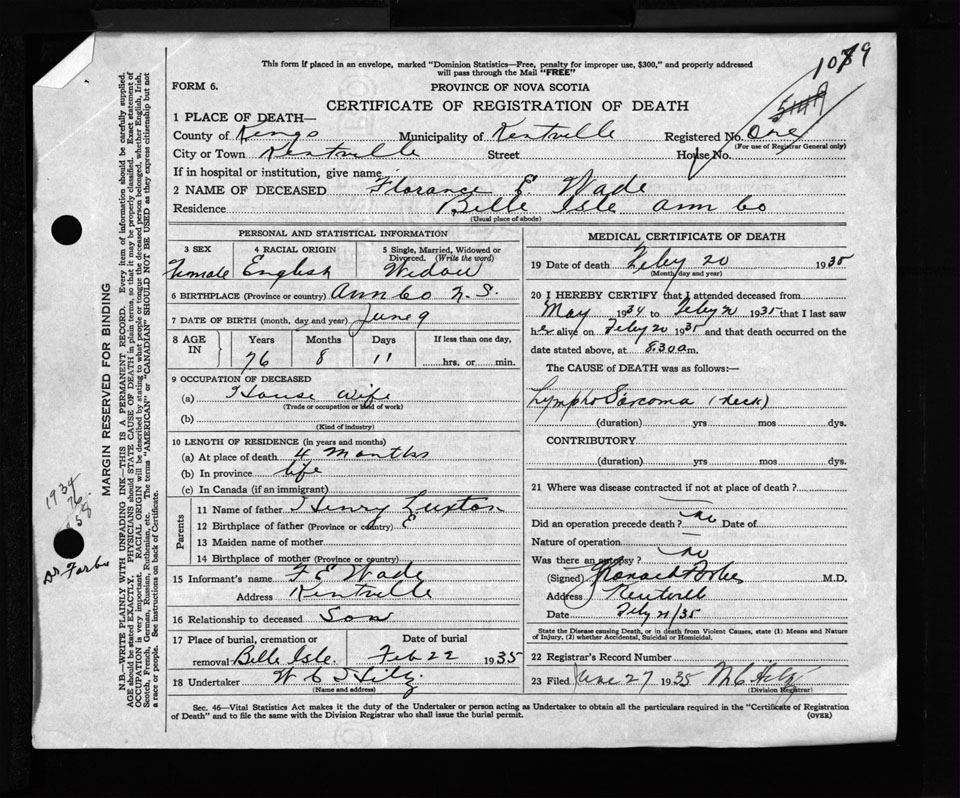 This form if placed in an envelope, marked "Dominion Statistics—Free, penalty for improper use, $300," and properly addressed
will pass through the Mail "FREE"
1079
FORM 6.
PROVINCE OF NOVA SCOTIA
CERTIFICATE OF REGISTRATION OF DEATH
1 PLACE OF DEATH—
County of Kings Municipality of Kentville Registered No. One
(For use of Registrar General only)
City or Town Kentville Street House No.
If in hospital or institution, give name
2 NAME OF DECEASED Florance E. Wade
Residence Belle Isle Ann Co
(Usual place of abode)
PERSONAL AND STATISTICAL INFORMATION
3 SEX 4 RACIAL ORIGIN 5 Single, Married, Widowed or Divorced. (Write the word)
Female English Widow
6 BIRTHPLACE (Province or country) Ann Co N.S.
7 DATE OF BIRTH (month, day and year) June 9
8 AGE IN Years Months Days If less than one day,
76 8 11 hrs. or min.
9 OCCUPATION OF DECEASED
(a) House wife
(Trade or occupation or kind of work)
(b)
(Kind of industry)
10 LENGTH OF RESIDENCE (in years and months)
(a) At place of death 4 Months
(b) In province life
(c) In Canada (if an immigrant)
Parents
11 Name of father Henry Luxton
12 Birthplace of father (Province or country) E
13 Maiden name of mother
14 Birthplace of mother (Province or country)
15 Informant's name F E Wade
Address Kentville
16 Relationship to deceased Son
17 Place of burial, cremation or removal Belle Isle. Date of burial Feb 22 1935
18 Undertaker W C Hilz
(Name and address)
MEDICAL CERTIFICATE OF DEATH
19 Date of death Feby 20 1935
(Month, day and year)
20 I HEREBY CERTIFY that I attended deceased from
May 1934 to Feby 20 1935 that I last saw
her alive on Feby 20 1935 and that death occurred on the
date stated above, at 8.30 a m.
The CAUSE of DEATH was as follows:—
Lympho Sarcoma (neck)
(duration) yrs mos dys.
CONTRIBUTORY
(duration) yrs mos dys.
21 Where was disease contracted if not at place of death?
Did an operation precede death? no Date of
Nature of operation
Was there an autopsy? no
(Signed) M.D.
Address Kentville
Date Feby 21/35
State the Disease causing Death, or in death from Violent Causes, state (1) Means and Nature
of Injury, (2) whether Accidental, Suicidal or Homicidal.
22 Registrar's Record Number
23 Filed June 27 1935 M C Hilz
(Division Registrar)
Sec. 46—Vital Statistics Act makes it the duty of the Undertaker or person acting as Undertaker to obtain all the particulars required in the "Certificate of Registration
of Death" and to file the same with the Division Registrar who shall issue the burial permit. (OVER)
MARGIN RESERVED FOR BINDING
N.B.—WRITE PLAINLY WITH UNFADING INK—THIS IS A PERMANENT RECORD. Every item of information should be carefully supplied.
AGE should be stated EXACTLY. PHYSICIANS should STATE CAUSE OF DEATH in plain terms, so that it may be properly classified. Exact statement of
OCCUPATION is very important. RACIAL ORIGIN will be described by stating to what people or tongue the deceased person belonged, whether English, Irish,
Scotch, French, German, Russian, Ruthenian, etc. The terms "AMERICAN" or "CANADIAN" SHOULD NOT BE USED as they express citizenship but not
a race or people. See instructions on back of Certificate.
1934
76
58